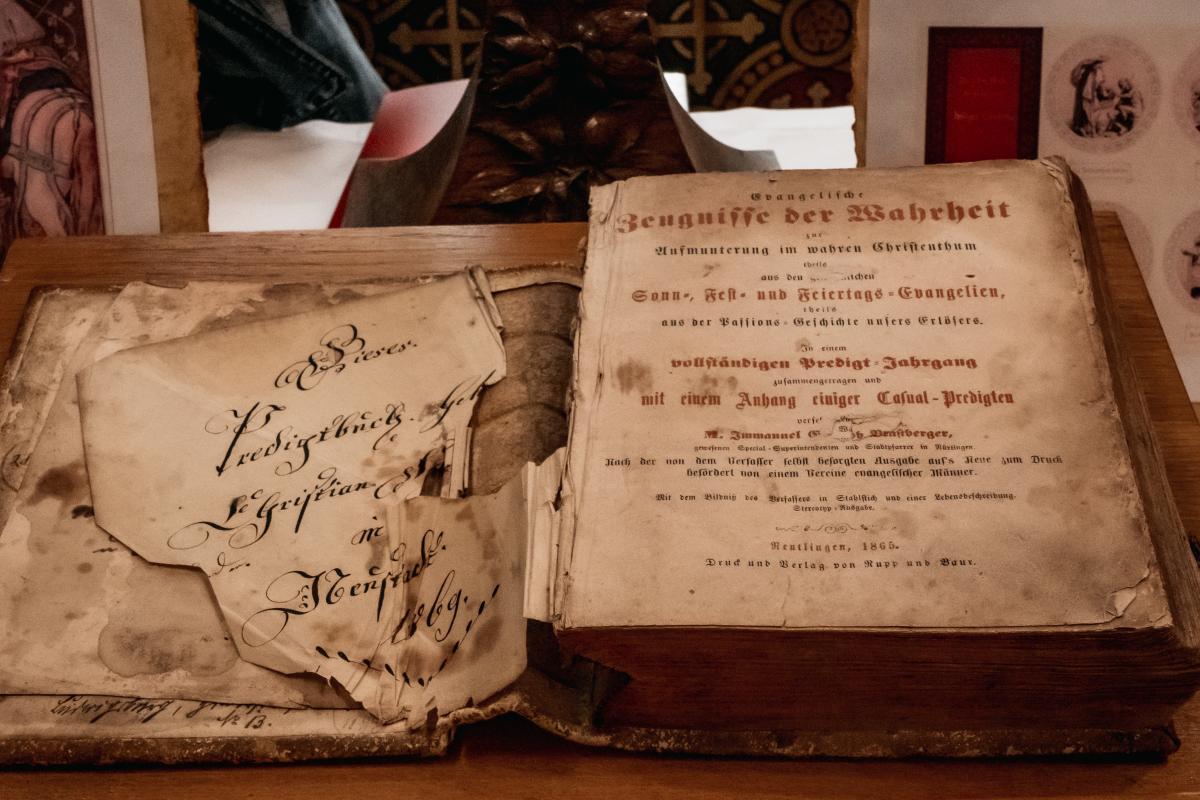 Dieses.
Predigtbuch. Geh
Christian
in
Neustadt.
1869.
Ludwigsburg,
№ 13.
Evangelische
Zeugnisse der Wahrheit
zur
Aufmunterung im wahren Christenthum
theils
aus den
Sonn-, Fest- und Feiertags-Evangelien,
theils
aus der Passions-Geschichte unsers Erlösers.
In einem
vollständigen Predigt-Jahrgang
zusammengetragen und
mit einem Anhang einiger Casual-Predigten
M. Immanuel G Brastberger,
gewesenen Special-Superintendenten und Stadtpfarrer in Nürtingen.
Nach der von dem Verfasser selbst besorgten Ausgabe auf's Neue zum Druck
befördert von einem Vereine evangelischer Männer.
Mit dem Bildniß des Verfassers in Stahlstich und einer Lebensbeschreibung.
Stereotyp-Ausgabe.
Reutlingen, 1865.
Druck und Verlag von Rupp und Baur.